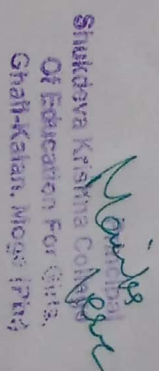 Principal
Shukdeva Krishna College
Of Education For Girls,
Ghall-Kalan, Moga (Pb.)